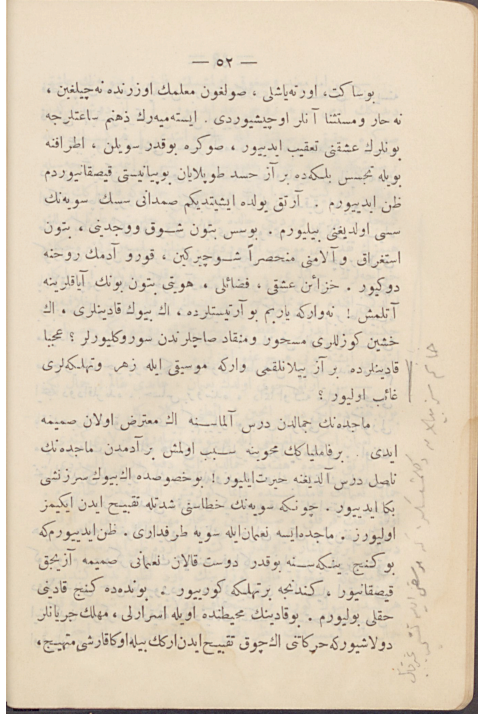 — ٥٢ —
بوساكت، اورته‌ياشلی ، صولغون معلمك اوزرنده نه‌چيلغين ،
نه حار ومستثنا آنلر اوچيشيوردی . ايسته‌ميه‌رك ذهنم ساعتلرجه
بونلرك عشقنی تعقيب ايدييور ، صوكره بوقدر سويلن ، اطرافنه
بويله تجسس بلكه‌ده بر آز حسد طوپلايان بوپيانيستی قيصقانيوردم
ظن ايدييورم . آرتق بولده ايشيتديكم صمدانی سسك سويه‌نك
سسی اولديغنی بيليورم . بوسس بتون شوق ووجدينی ، بتون
استغراق وآلامنی منحصراً شو چيركين ، قورو آدمك روحنه
دوكيور . خزائن عشقی ، فضائلی ، هويتی بتون بونك آياقلرينه
آتلمش ! نه‌واركه ياربم بو آرتيستلرده ، اك بيوك قادينلری ، اك
خشين كوزللری مسحور ومنقاد صاچلرندن سوروكليورلر ؟ عجبا
قادينلرده بر آز ييلانلقمی واركه موسيقی ايله زهر وتهلكه‌لری
غائب اوليور ؟
ماجده‌نك جمالدن درس آلماسنه اك معترض اولان صميمه
ايدی . برفاميلياكك محوينه سبب اولمش بر آدمدن ماجده‌نك
ناصل درس آلديغنه حيرت‌ايليور ! بوخصوصده اك‌بيوك سرزنشی
بكا ايدييور . چونكه سويه‌نك خطاسنی شدتله تقبيح ايدن ايكيمز
اوليورز . ماجده‌ايسه نعمان‌ايله سويه طرفداری . ظن‌ايدييورم‌كه
بو كنج ينكه‌سنه بوقدر دوست قالان نعمانی صميمه آزيجق
قيصقانيور ، كندنجه برتهلكه كورييور . بونده‌ده كنج قادينی
حقلی بوليورم . بوقادينك محيطنده اويله اسرارلی ، مهلك جريانلر
دولاشيوركه حركاتنی اك چوق تقبيح ايدن اركك بيله اوكا قارشی متهيج،